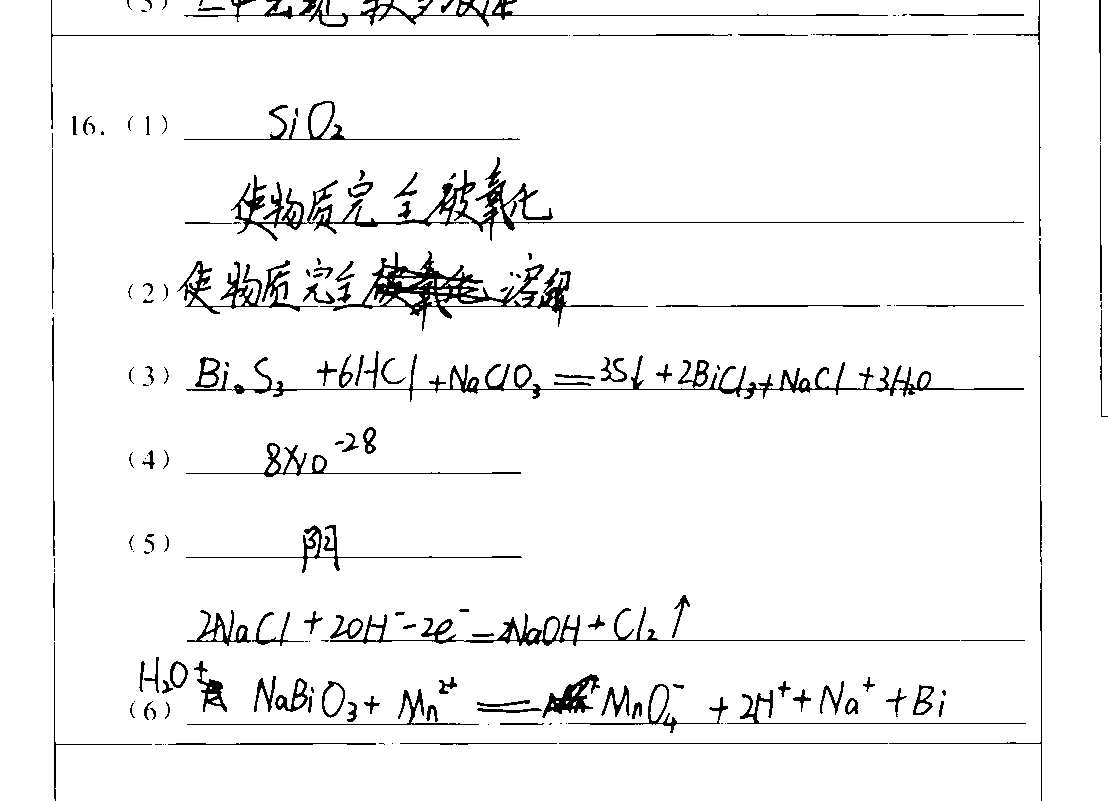 16.(1) SiO₂
使物质完全被氧化
(2) 使物质完全溶解
(3) Bi₂S₃ +6HCl +NaClO₃ == 3S↓ +2BiCl₃+NaCl +3H₂O
(4) 8×10⁻²⁸
(5) 阴
2NaCl + 2OH⁻ - 2e⁻ = 2NaOH + Cl₂ ↑
H₂O +
(6) NaBiO₃ + Mn²⁺ == MnO₄⁻ + 2H⁺ + Na⁺ + Bi